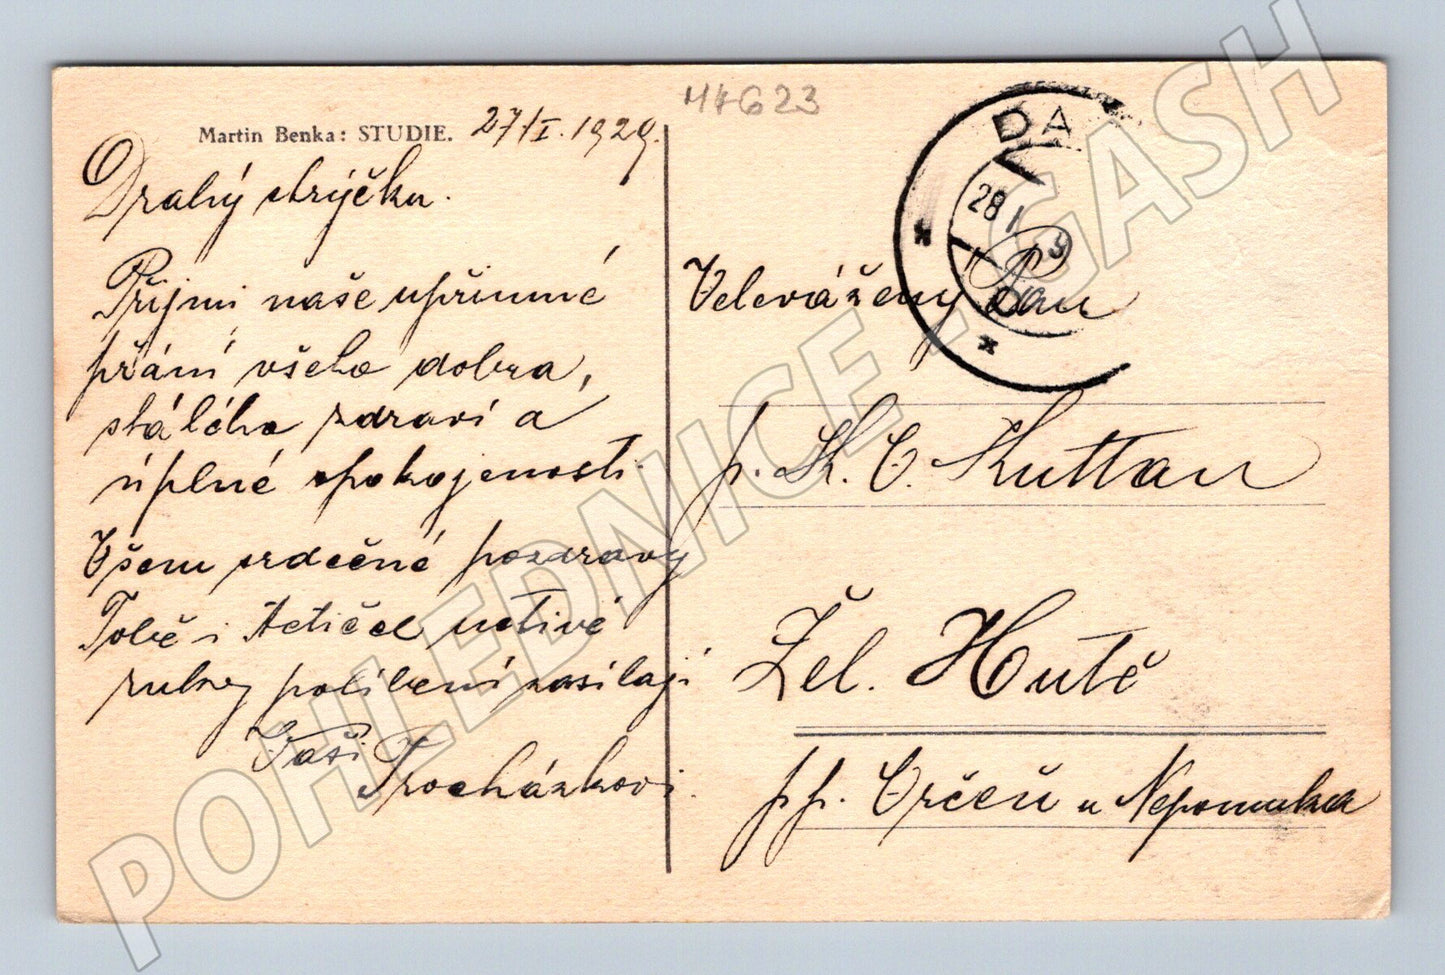 Martin Benka: STUDIE. 27/I. 1929.
M4623
Drahý strýčku.
Přijmi naše upřímné
přání všeho dobra,
stálého zdraví a
úplné spokojenosti.
Všem srdečné pozdravy
Tobě i tetičce uctivé
ruky políbení zasílají
Vaši Procházkovi.
DA
28 I 9
Velevážený Pan
p. K. C. Kuttan
Žel. Hutě
pp. Vrčeň u Nepomuka
POHLEDNICE - GASH